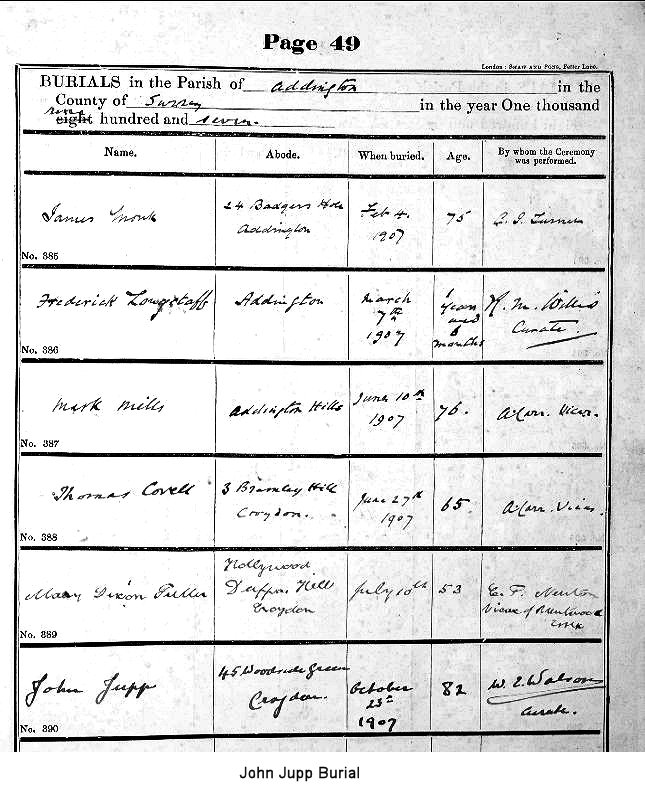 Page 49
London: SHAW AND SONS, Fetter Lane.
BURIALS in the Parish of Addington in the
County of Surrey in the year One thousand
nine
eight hundred and seven.
Name. Abode. When buried. Age. By whom the Ceremony was performed.
James Monk
24 Badgers Hole
Addington
Feb 4.
1907
75
No. 385
Frederick Longstaff
Addington
March
7th
1907
1
Year
and
8
months
H. M. Willis
Curate.
No. 386
Mark Mills
Addington Hills
June 10th
1907
76.
A. Carr. Vicar.
No. 387
Thomas Covell
3 Bramley Hill
Croydon.
June 27th
1907
65.
A. Carr. Vicar.
No. 388
Mary Dixon Fuller
Hollywood
Hill
Croydon
July 10th
53
E. F. Newton
Vicar of Brentwood
Essex
No. 389
John Jupp
45 Woodside Green
Croydon.
October
23rd
1907
82
W. E. Watson
Curate.
No. 390
John Jupp Burial